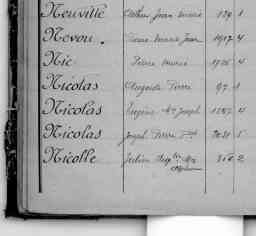 Neuville Arthur Jean Marie 129 1
Nevou. Pierre Marie Jean 1917 4
Nic Pierre Marie 1726 4
Nicolas Auguste Pierre 97 1
Nicolas Eugène Joseph 1287 4
Nicolas Joseph Pierre 5
Nicolle Julien 2